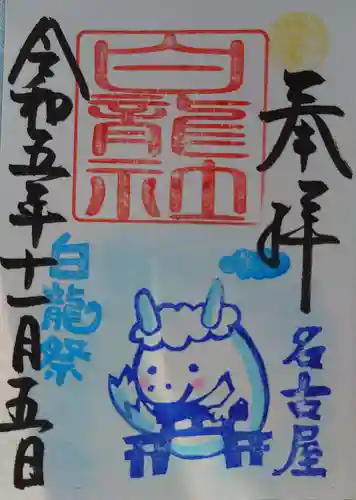 奉拝
名古屋
白龍神社
白龍祭
令和五年十一月五日